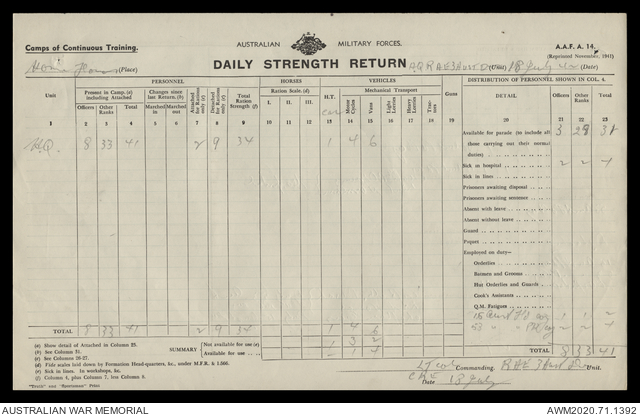 Camps of Continuous Training.
AUSTRALIAN MILITARY FORCES.
A.A.F. A. 14
(Reprinted November, 1941)
(Place)
DAILY STRENGTH RETURN
(Unit) 18 July (Date)
PERSONNEL
HORSES
VEHICLES
DISTRIBUTION OF PERSONNEL SHOWN IN COL. 4.
Unit
Present in Camp, (e) including Attached
Changes since last Return (b)
Attached for Rations only (c)
Detached for Rations (c)
Total Ration Strength (f)
Ration Scale. (d)
H.T.
Mechanical Transport
Guns
DETAIL
Officers Other Ranks Total
Marched in Marched out
I. II. III.
Motor Cycles Vans Light Lorries Heavy Lorries Trac-tors
Officers Other Ranks Total
1 2 3 4 5 6 7 8 9 10 11 12 13 14 15 16 17 18 19 20 21 22 23
H.Q. 8 33 41 2 9 34 1 4 6
Available for parade (to include all those carrying out their normal duties) 3 28 31
Sick in hospital 2 2 4
Sick in lines
Prisoners awaiting disposal
Prisoners awaiting sentence
Absent with leave
Absent without leave
Guard
Piquet
Employed on duty—
Orderlies
Batmen and Grooms
Hut Orderlies and Guards
Cook's Assistants
Q.M. Fatigues
TOTAL 8 33 41 2 9 34 1 4 6
TOTAL 8 33 41
(a) Show detail of Attached in Column 25.
(b) See Column 31.
(c) See Columns 26-27.
(d) Fide scales laid down by Formation Head-quarters, &c., under M.F.R. & I.666.
(e) Sick in lines. In workshops, &c.
(f) Column 4, plus Column 7, less Column 8.
SUMMARY
Not available for use (e) 3 2
Available for use 1 1 4
Lt Col Commanding. Unit.
CRE
Date 18 July
AUSTRALIAN WAR MEMORIAL
AWM2020.71.1392